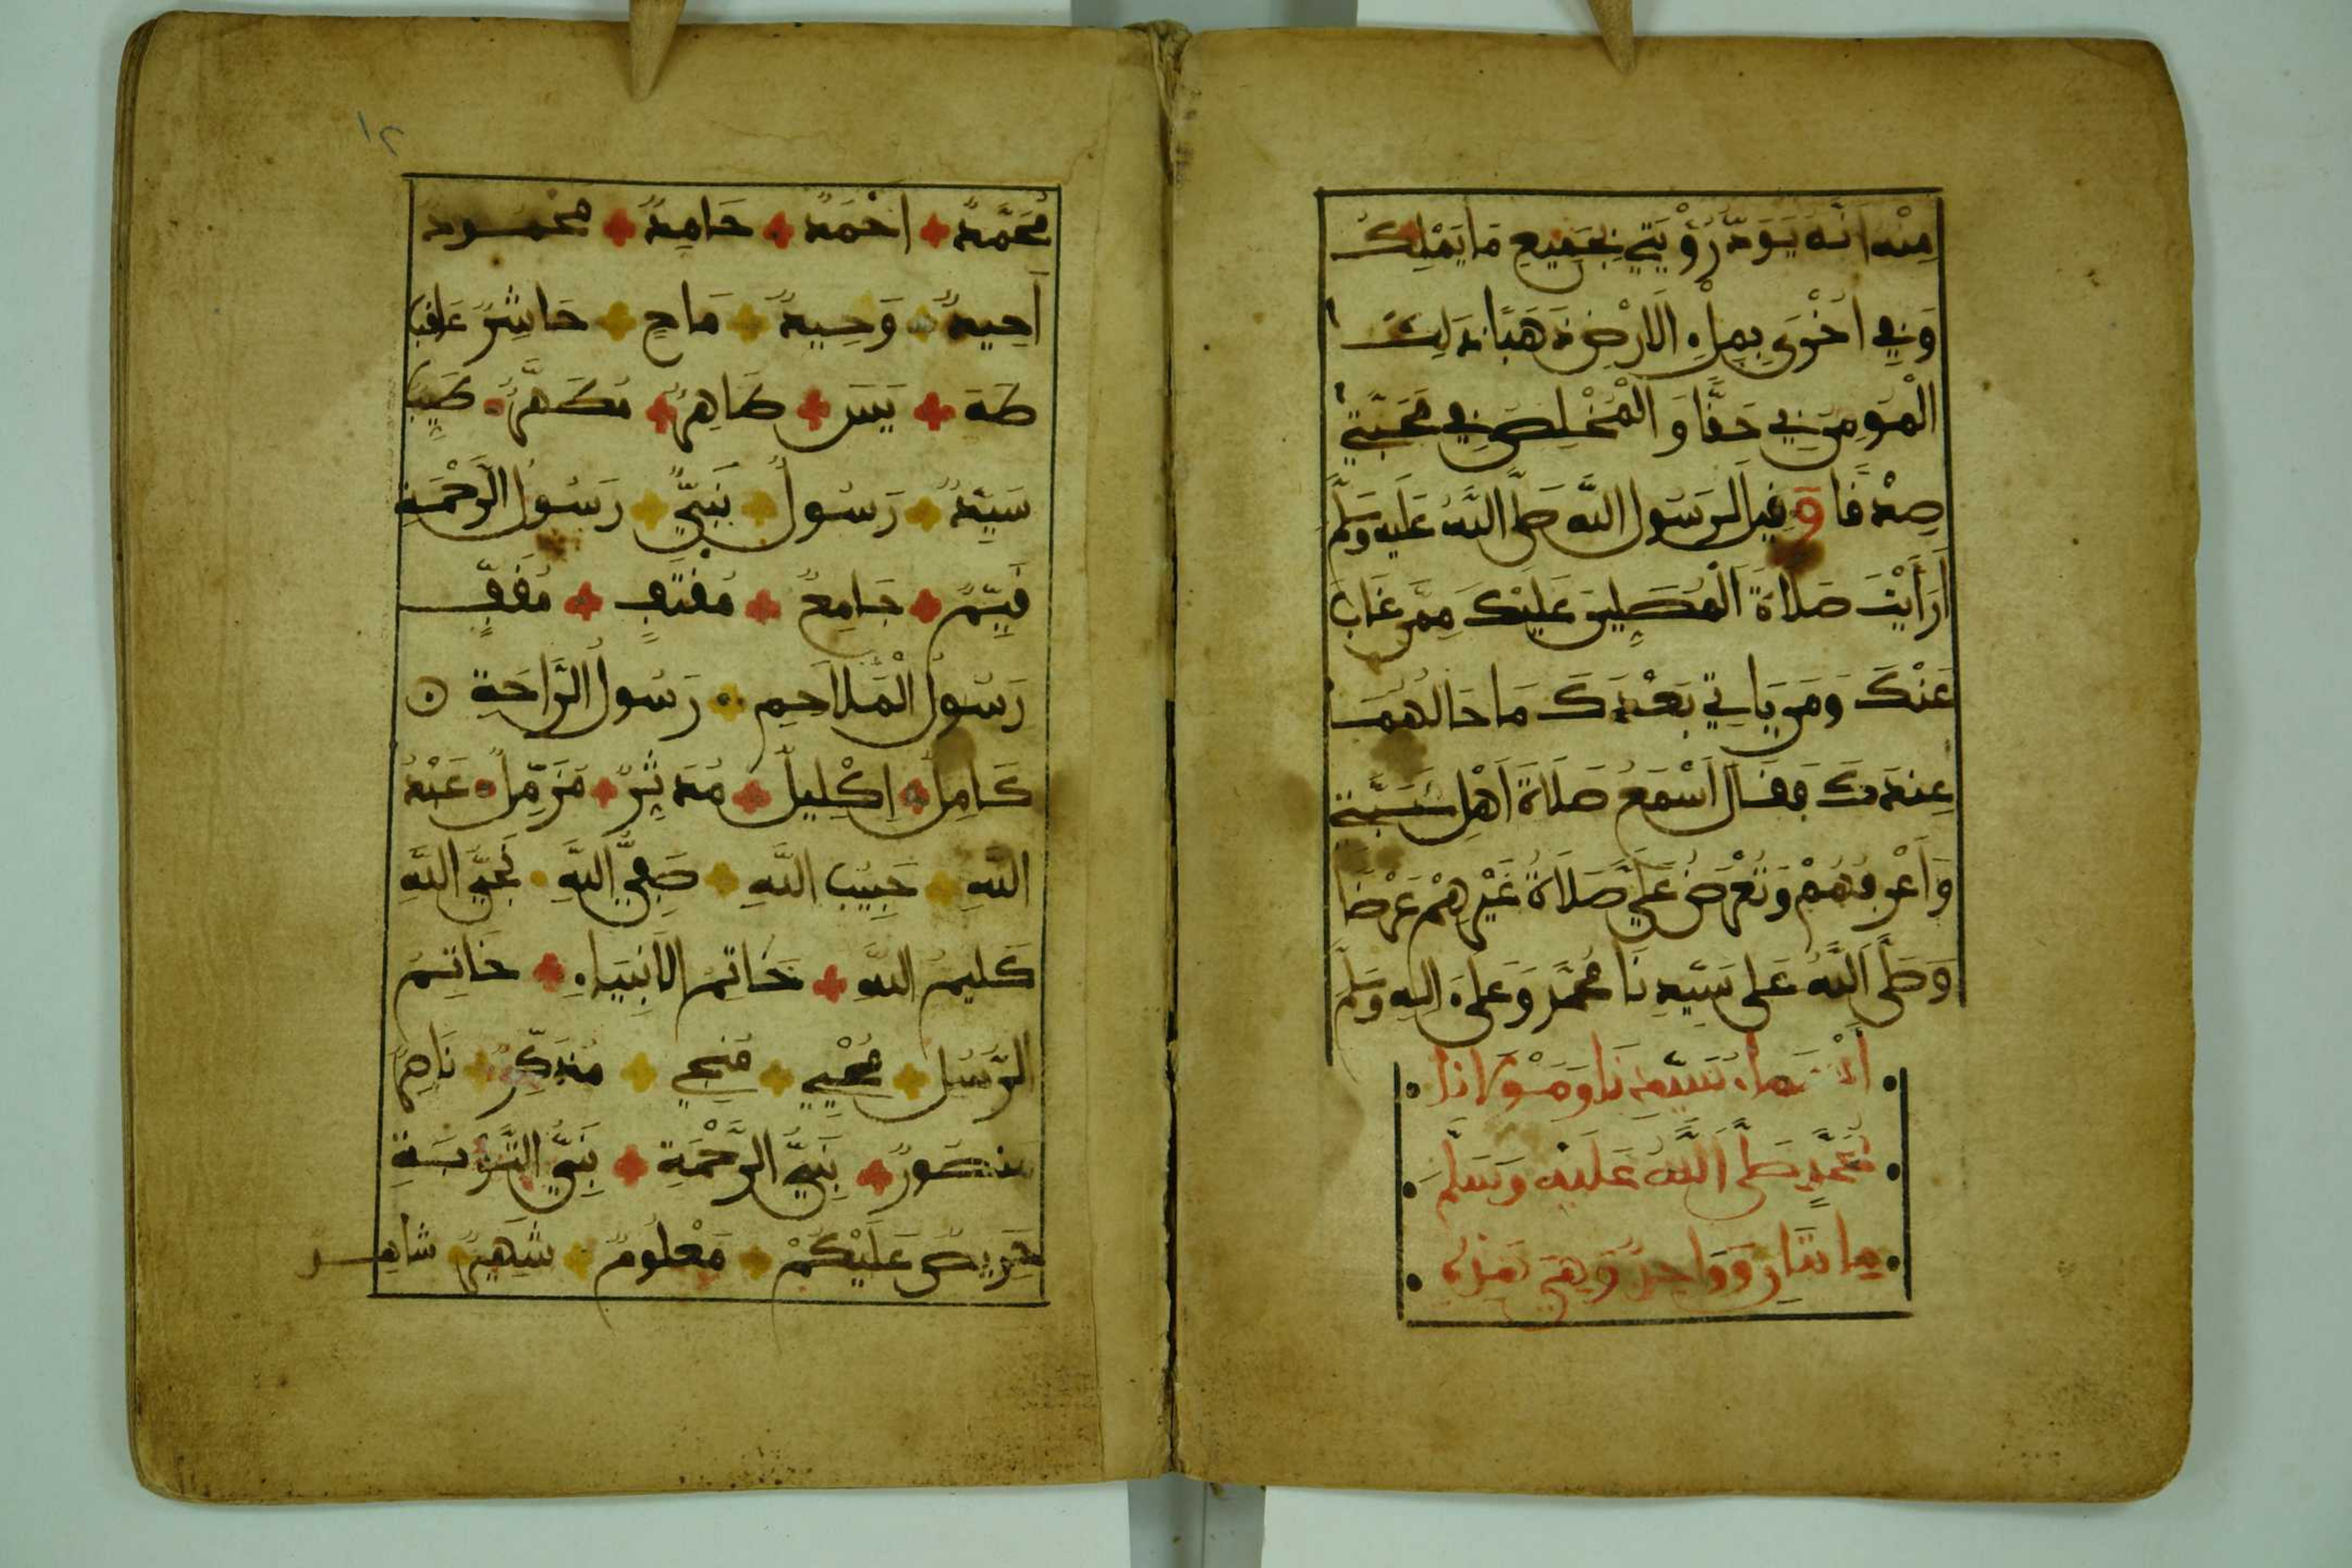 مِنْه اَنَّه يَوَدُّ رُؤْيَتِي بِجَمِيعِ مَا يَمْلِكُ
وَفِي اُخْرَى بِمِلْءِ الَارْضِ ذَهَبًا ذَلِكَ
الْمُومِنُ بِي حَقًّا وَ الْمُخْلِصُ فِي مَحَبَّتِي
صِدْقًا وَقِيلَ لِرَسُولِ اللَّه صَلَّى اللَّهُ عَلَيْهِ وَسَلَّمَ
أَرَأَيْتَ صَلَاةَ الْمُصَلِّينَ عَلَيْكَ مِمَّن غَابَ
عَنْكَ وَمَن يَاتِي بَعْدَكَ مَا حَالُهُمَا
عِنْدَكَ فَقَالَ اَسْمَعُ صَلَاةَ اَهْلِ مَحَبَّتِي
وَاَعْرِفُهُمْ وَتُعْرَضُ عَلَيَّ صَلَاةُ غَيْرِهِمْ عَرْضًا
وَصَلَّى اللَّهُ عَلَى سَيِّدِنَا مُحَمَّدٍ وَعَلَى ءَالِهِ وَسَلَّمَ
أَسْمَاءُ سَيِّدِنَا وَمَوْلَانَا
مُحَمَّدٍ صَلَّى اللَّهُ عَلَيْهِ وَسَلَّمَ
مِائَتَانِ وَوَاحِدٌ وَهِيَ هَذِهِ
١٢
مُحَمَّدٌ اَحْمَدُ حَامِدٌ مَحْمُودٌ
اَحِيدٌ وَحِيدٌ مَاحٍ حَاشِرٌ عَاقِبٌ
طَهَ يَسَ طَاهِرٌ مُطَهَّرٌ طَيِّبٌ
سَيِّدٌ رَسُولٌ نَبِيٌّ رَسُولُ الرَّحْمَةِ
قَيِّمٌ جَامِعٌ مُقْتَفٍ مُقَفٍّ
رَسُولُ الْمَلَاحِمِ رَسُولُ الرَّاحَةِ
كَامِلٌ إِكْلِيلٌ مُدَثِّرٌ مُزَمِّلٌ عَبْدُ
اللَّهِ حَبِيبُ اللَّهِ صَفِيُّ اللَّهِ نَجِيُّ اللَّهِ
كَلِيمُ اللَّهِ خَاتِمُ الَانْبِيَاءِ خَاتِمُ
الرُّسُلِ مُحْيِي مُنْجِي مُذَكِّرٌ نَاصِرٌ
مَنْصُورٌ نَبِيُّ الرَّحْمَةِ نَبِيُّ التَّوْبَةِ
حَرِيصٌ عَلَيْكُمْ مَعْلُومٌ شَهِيرٌ شَاهِدٌ